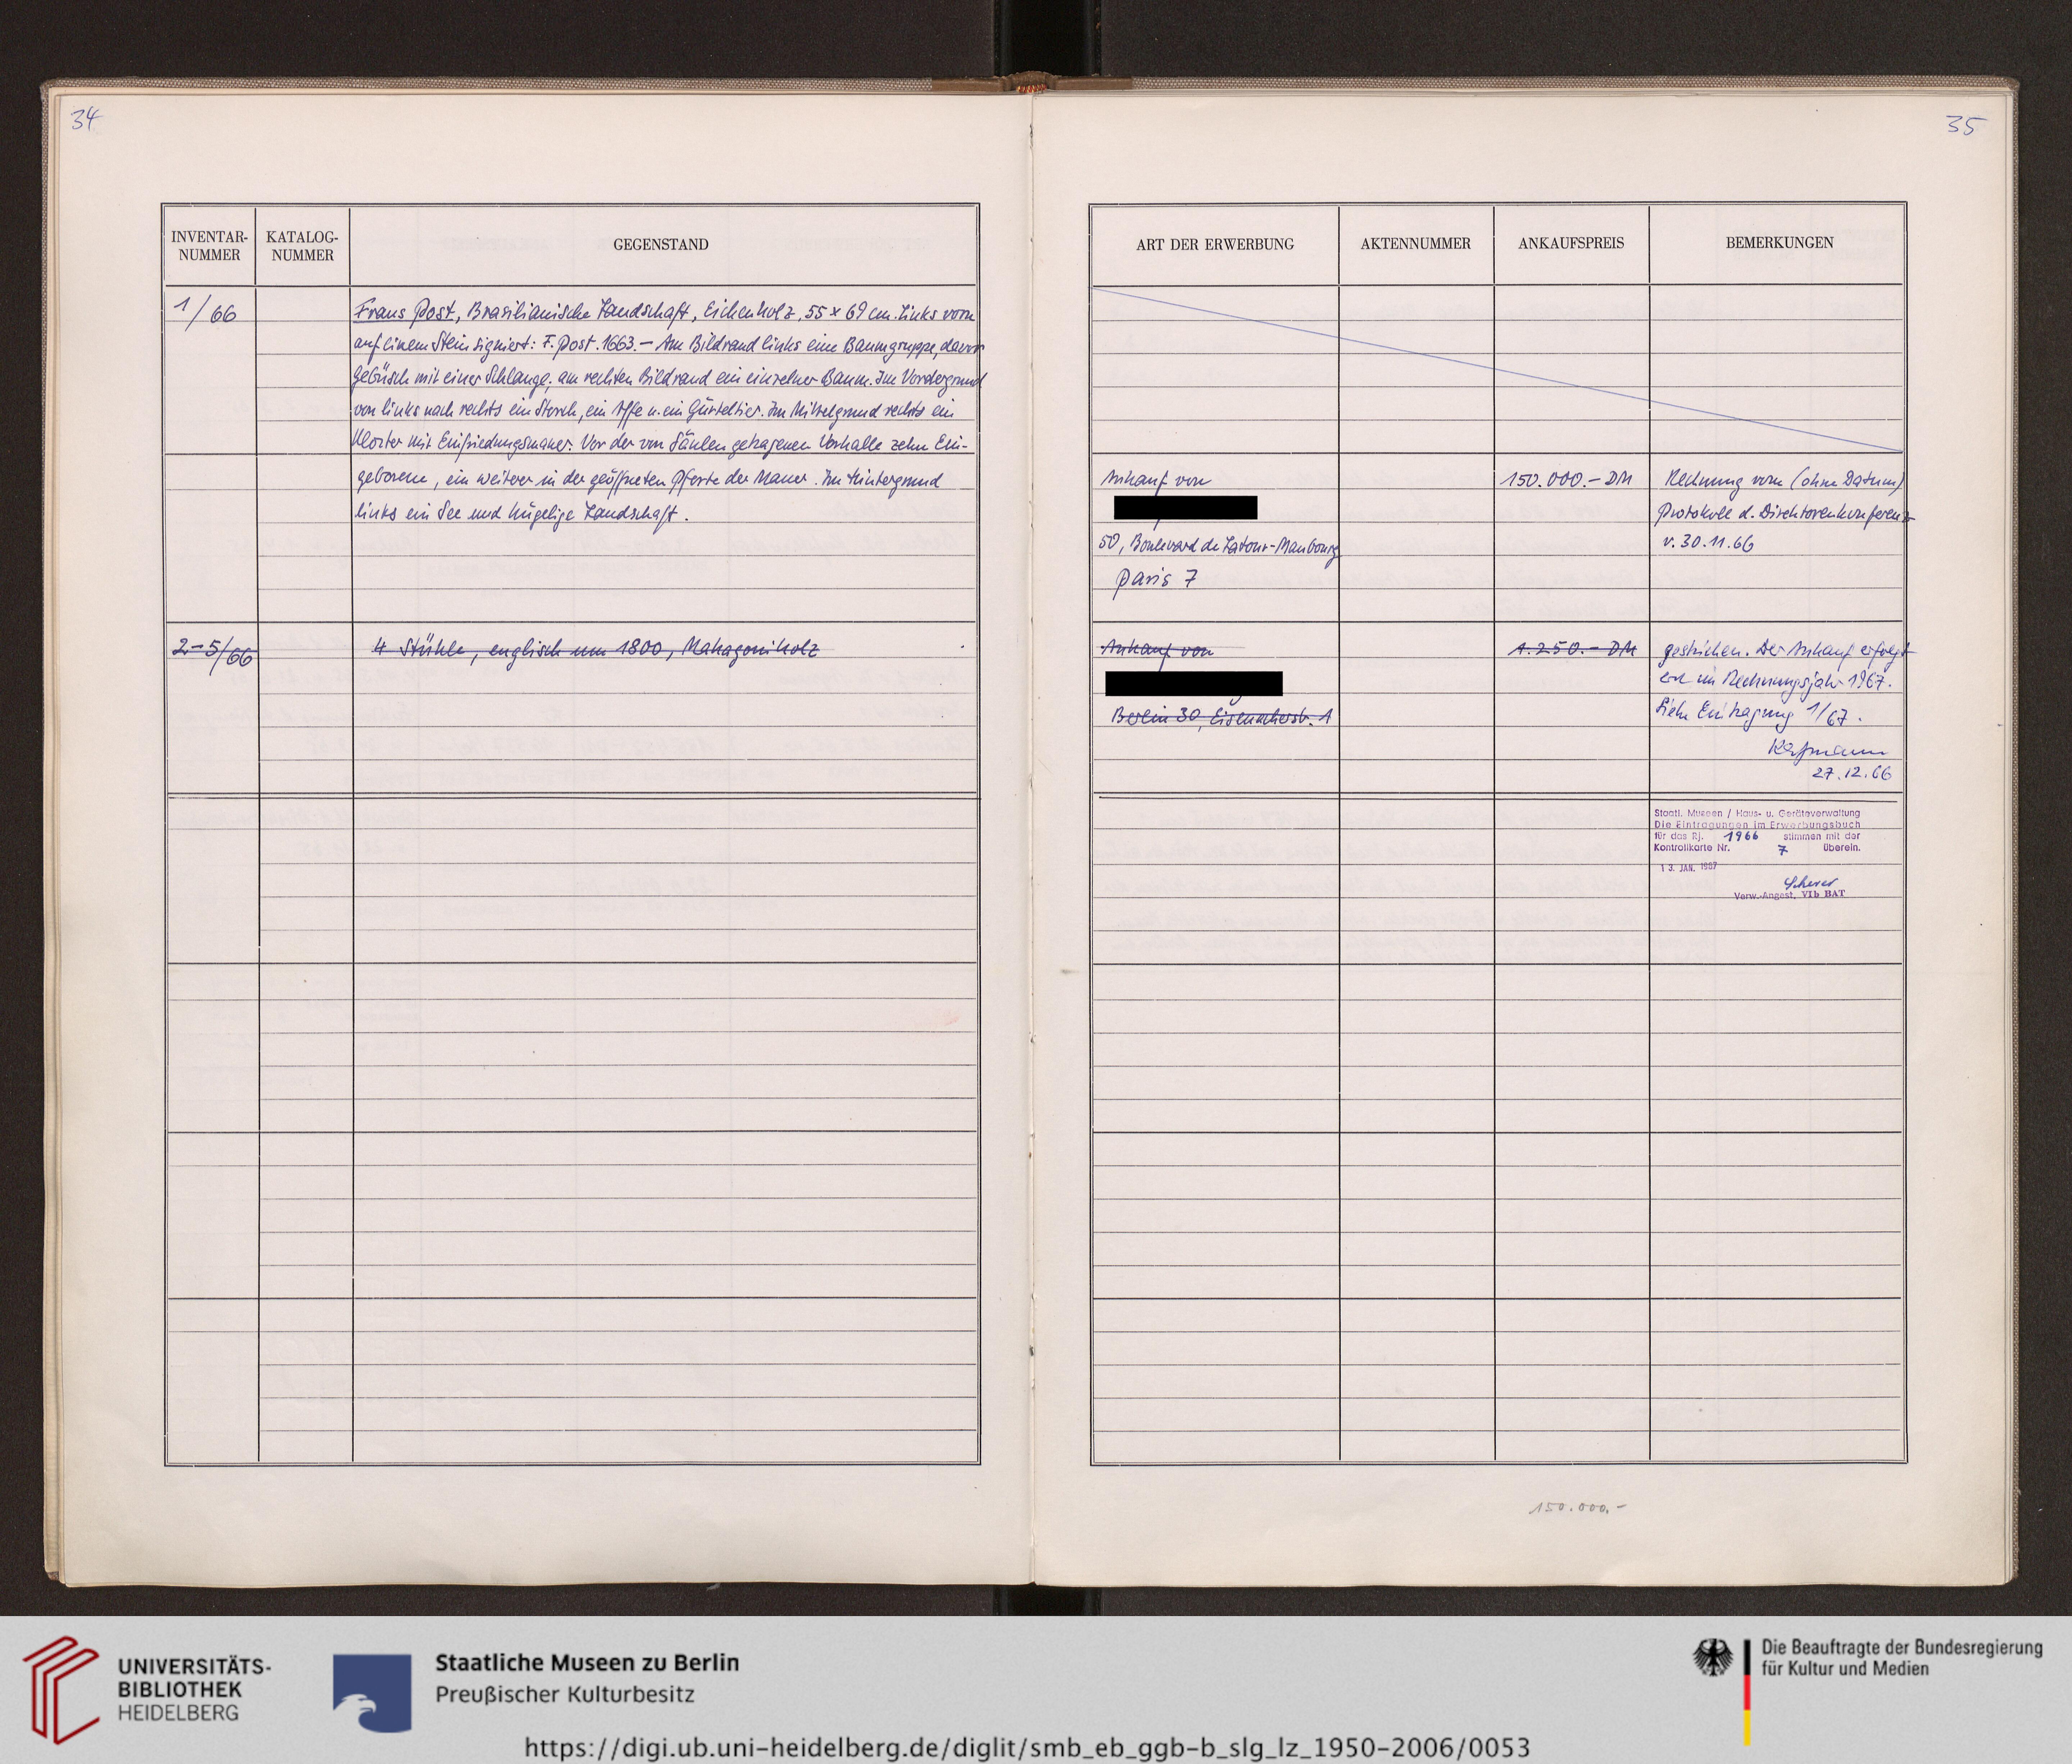 34
35
INVENTAR-
NUMMER
KATALOG-
NUMMER
GEGENSTAND
1/66
Frans Post, Brasilianische Landschaft, Eichenholz, 55 x 69 cm. Links vorn
auf einem Stein signiert: F. Post. 1663. – Am Bildrand links eine Baumgruppe, davor
Gebüsch mit einer Schlange, am rechten Bildrand ein einzelner Baum. Im Vordergrund
von links nach rechts ein Storch, ein Affe u. ein Gürteltier. Im Mittelgrund rechts ein
Kloster mit Einfriedungsmauer. Vor der von Säulen getragenen Vorhalle zehn Ein-
geborene, ein weiterer in der geöffneten Pforte der Mauer. Im Hintergrund
links ein See und hügelige Landschaft.
2–5/66
4 Stühle, englisch um 1800, Mahagoniholz
ART DER ERWERBUNG
AKTENNUMMER
ANKAUFSPREIS
BEMERKUNGEN
Ankauf von
50, Boulevard de Latour-Maubourg
Paris 7
150.000.– DM
Rechnung vom (ohne Datum)
Protokoll d. Direktorenkonferenz
v. 30.11.66
Ankauf von
Berlin 30, Eisenacherstr. 1
1.250.– DM
gestrichen. Der Ankauf erfolgt
erst im Rechnungsjahr 1967.
Siehe Eintragung 1/67.
27.12.66
Staatl. Museen / Haus- u. Geräteverwaltung
Die Eintragungen im Erwerbungsbuch
für das Rj. 1966 stimmen mit der
Kontrollkarte Nr. 7 überein.
13. JAN. 1967
Verw.-Angest. VIb BAT
150.000.–
UNIVERSITÄTS-
BIBLIOTHEK
HEIDELBERG
Staatliche Museen zu Berlin
Preußischer Kulturbesitz
Die Beauftragte der Bundesregierung
für Kultur und Medien
https://digi.ub.uni-heidelberg.de/diglit/smb_eb_ggb-b_slg_lz_1950-2006/0053